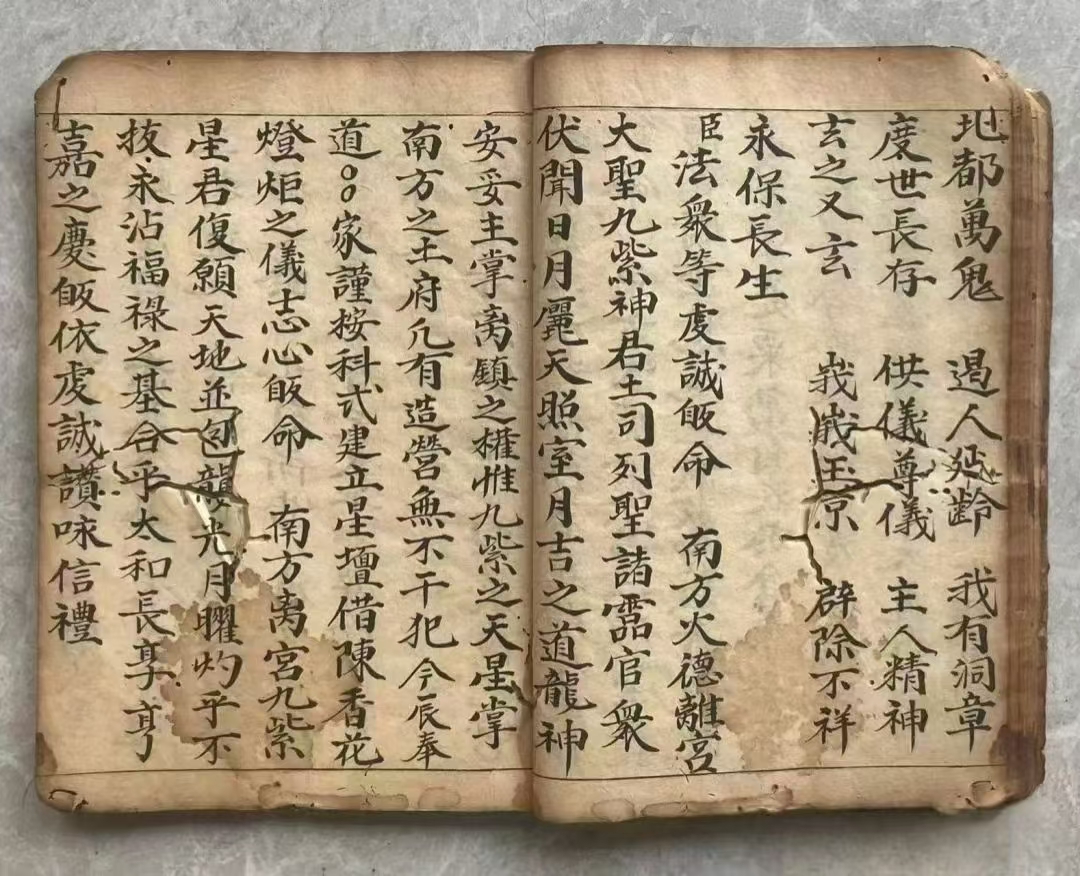 地都萬鬼 過人延齡 我有洞章
度世長存 供儀尊儀 主人精神
玄之又玄 峩峩玉京 辟除不祥
永保長生
臣法衆等虔誠皈命 南方火德離宮
大聖九紫神君土司列聖諸靈官衆
伏聞日月麗天照室月吉之道龍神
安妥主掌离鎮之權惟九紫之天星掌
南方之土府凡有造營無不干犯今辰奉
道○○家謹按科式建立星壇借陳香花
燈炬之儀志心皈命 南方离宮九紫
星君復願天地並包龔光月曜灼乎不
抜永沾福禄之基合乎太和長享亨
嘉之慶皈依虔誠讃咏信禮